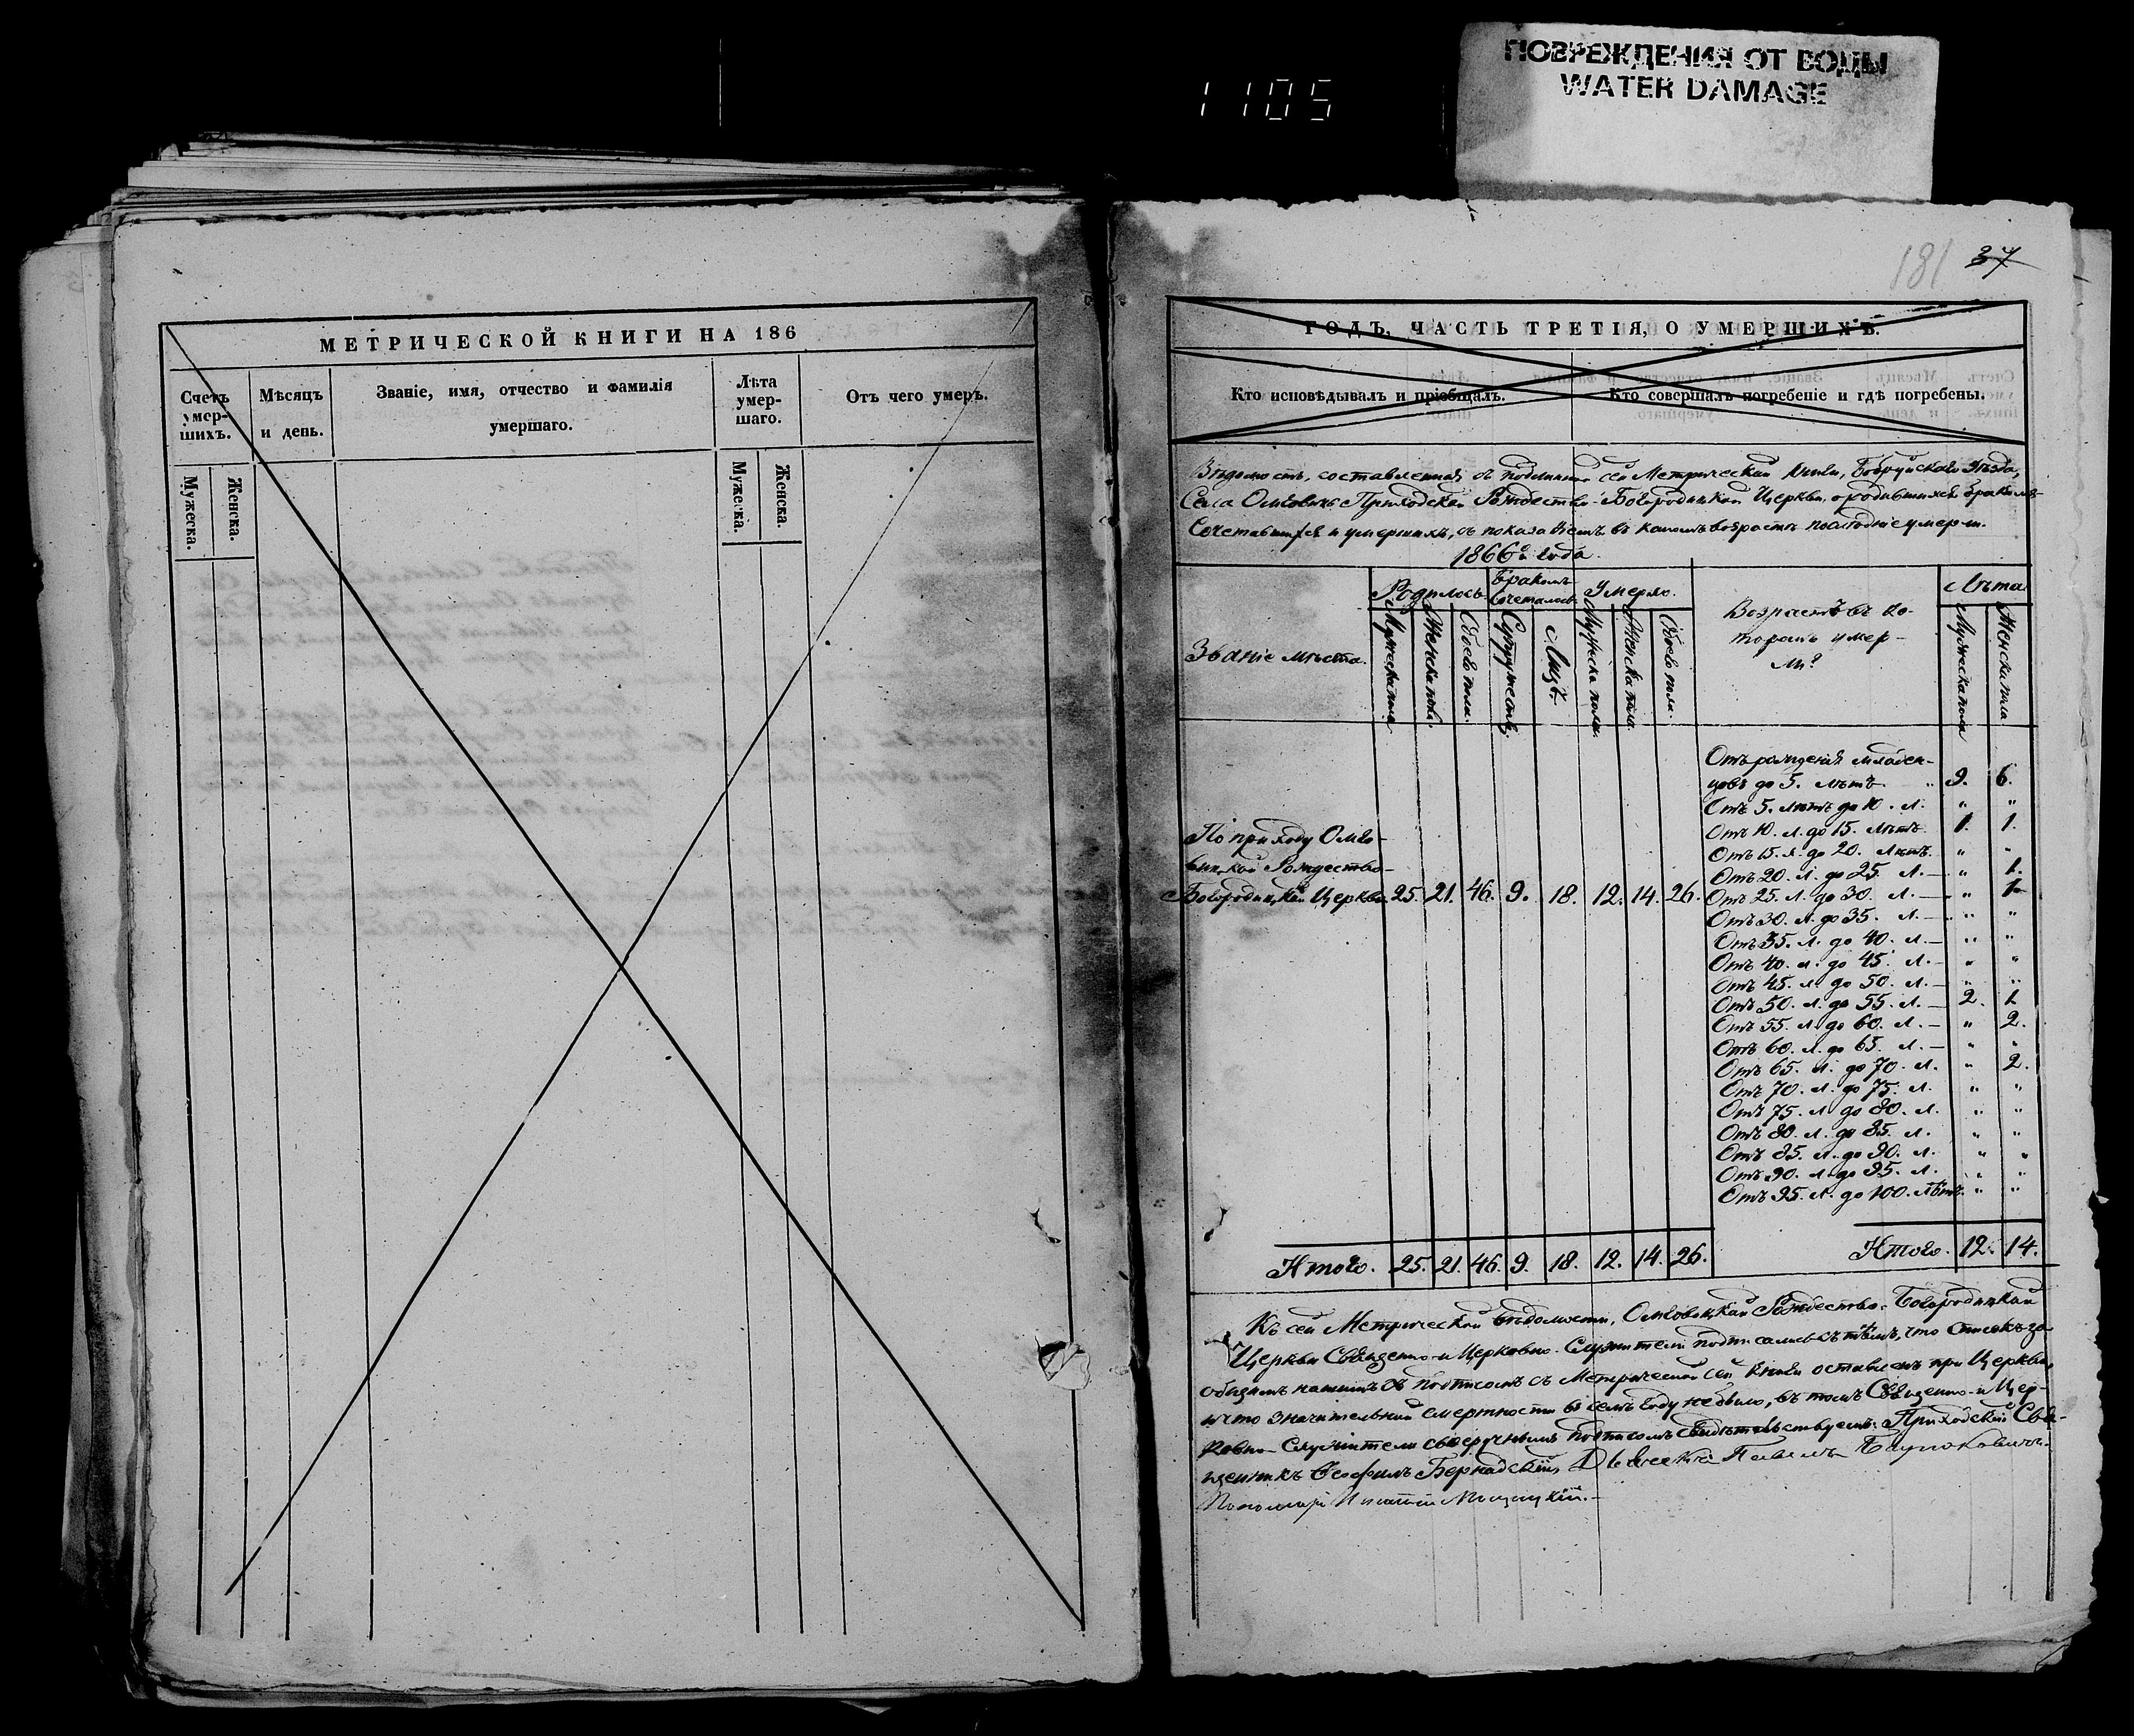 ПОВРЕЖДЕНИЯ ОТ ВОДЫ
WATER DAMAGE
1105
181 37
МЕТРИЧЕСКОЙ КНИГИ НА 186
Счетъ умер-шихъ.
Мѣсяцъ и день.
Званіе, имя, отчество и фамилія умершаго.
Лѣта умер-шаго.
Отъ чего умеръ.
Мужеска.
Женска.
Мужеска.
Женска.
ГОДЪ, ЧАСТЬ ТРЕТІЯ, О УМЕРШИХЪ.
Кто исповѣдывалъ и пріобщалъ.
Кто совершалъ погребеніе и гдѣ погребены.
Вѣдомость, составленная съ подлинной сей Метрической книги, Бобруйскаго Уѣзда,
Села Омговичъ Приходской Рождество-Богородицкой Церкви, о родившихся бракомъ
Сочетавшихся и умершихъ, съ показаніемъ въ какомъ возрастѣ послѣдніе умерли.
1866го года.
Званіе мѣста.
Родилось.
Бракомъ сочеталось
Умерло.
Возрастъ въ ко-
торомъ умер-
ли?
Лѣта
Мужеска пола
Женска пола
Обоего пола.
Супружествъ.
Лицъ.
Мужеска пола.
Женска пола.
Обоего пола.
Мужеска пола
Женска пола.
Отъ рожденія младен-
цовъ до 5. лѣтъ " 9. 6.
Отъ 5. лѣтъ до 10. л. " "
Отъ 10. л. до 15. лѣтъ. 1. 1.
Отъ 15. л. до 20. лѣтъ. " "
Отъ 20. л. до 25. л. — " 1.
По приходу Омго-
вицкой Рождество-
Богородицкой Церкви 25. 21. 46. 9. 18. 12. 14. 26.
Отъ 25. л. до 30. л. — " 1.
Отъ 30. л. до 35. л. — " "
Отъ 35. л. до 40. л. — " "
Отъ 40. л. до 45. л. — " "
Отъ 45. л. до 50. л. — " "
Отъ 50. л. до 55. л. — 2. 1.
Отъ 55. л. до 60. л. — " 2.
Отъ 60. л. до 65. л. — " "
Отъ 65. л. до 70. л. " 2.
Отъ 70. л. до 75. л. " "
Отъ 75. л. до 80. л. " "
Отъ 80. л. до 85. л. " "
Отъ 85. л. до 90. л. " "
Отъ 90. л. до 95. л. " "
Отъ 95. л. до 100. лѣтъ. " "
Итого. 25. 21. 46. 9. 18. 12. 14. 26.
Итого. 12. 14.
Къ сей Метрической вѣдомости, Омговицкой Рождество-Богородицкой
Церкви Священно-и Церковно-Служители подписались въ тѣмъ, что списокъ за
общимъ нашимъ подписомъ съ Метрической сей книги оставленъ при Церкви,
и что значительной смертности въ семъ году не было, въ томъ Священно-и Цер-
ковно-Служители своеручнымъ подписомъ свидѣтельствуемъ. Приходскій Свя-
щенникъ Ѳеофилъ Бернадскій, Павелъ
Пономарь